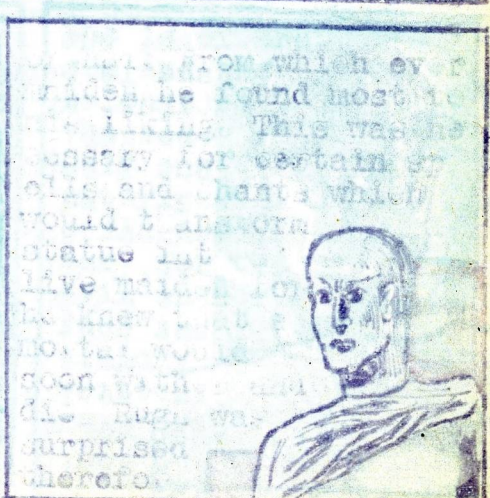 from which ever
maiden he found most to
his liking. This was ne
cessary for certain sp
ells and chants which
would t ansform
statue int
live maiden for
he knew that a
mortal would
soon with and
die. Ruga was
surprised
therefo